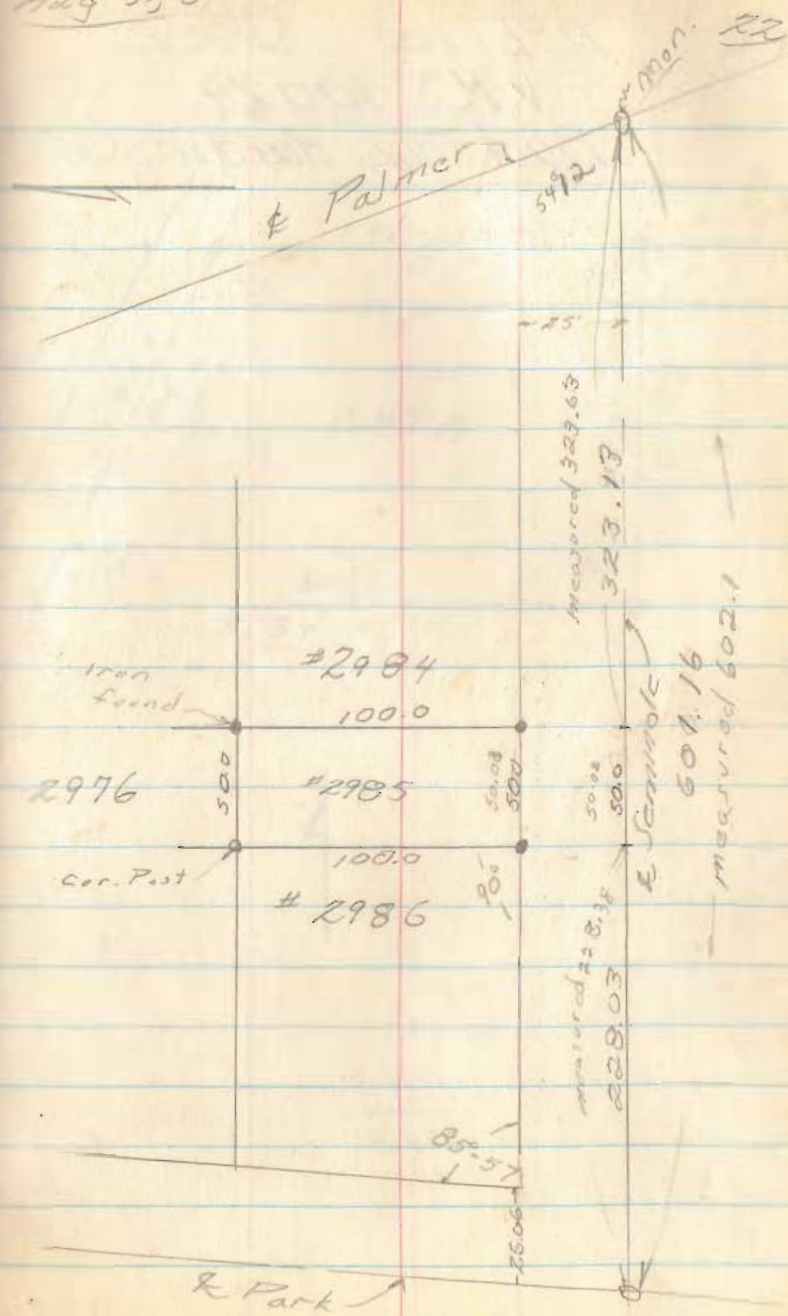 22
Mon.
℄ Palmer
54°12
25'
measured 323.63
323.13
#2984
Iron
found
100.0
2976
50.0
#2985
50.08
50.0
50.08
50.0
℄ Seminole
601.16
measured 602.1
100.0
Cor. Post
# 2986
90°
measured 228.38
228.03
85°-57
25.06
℄ Park